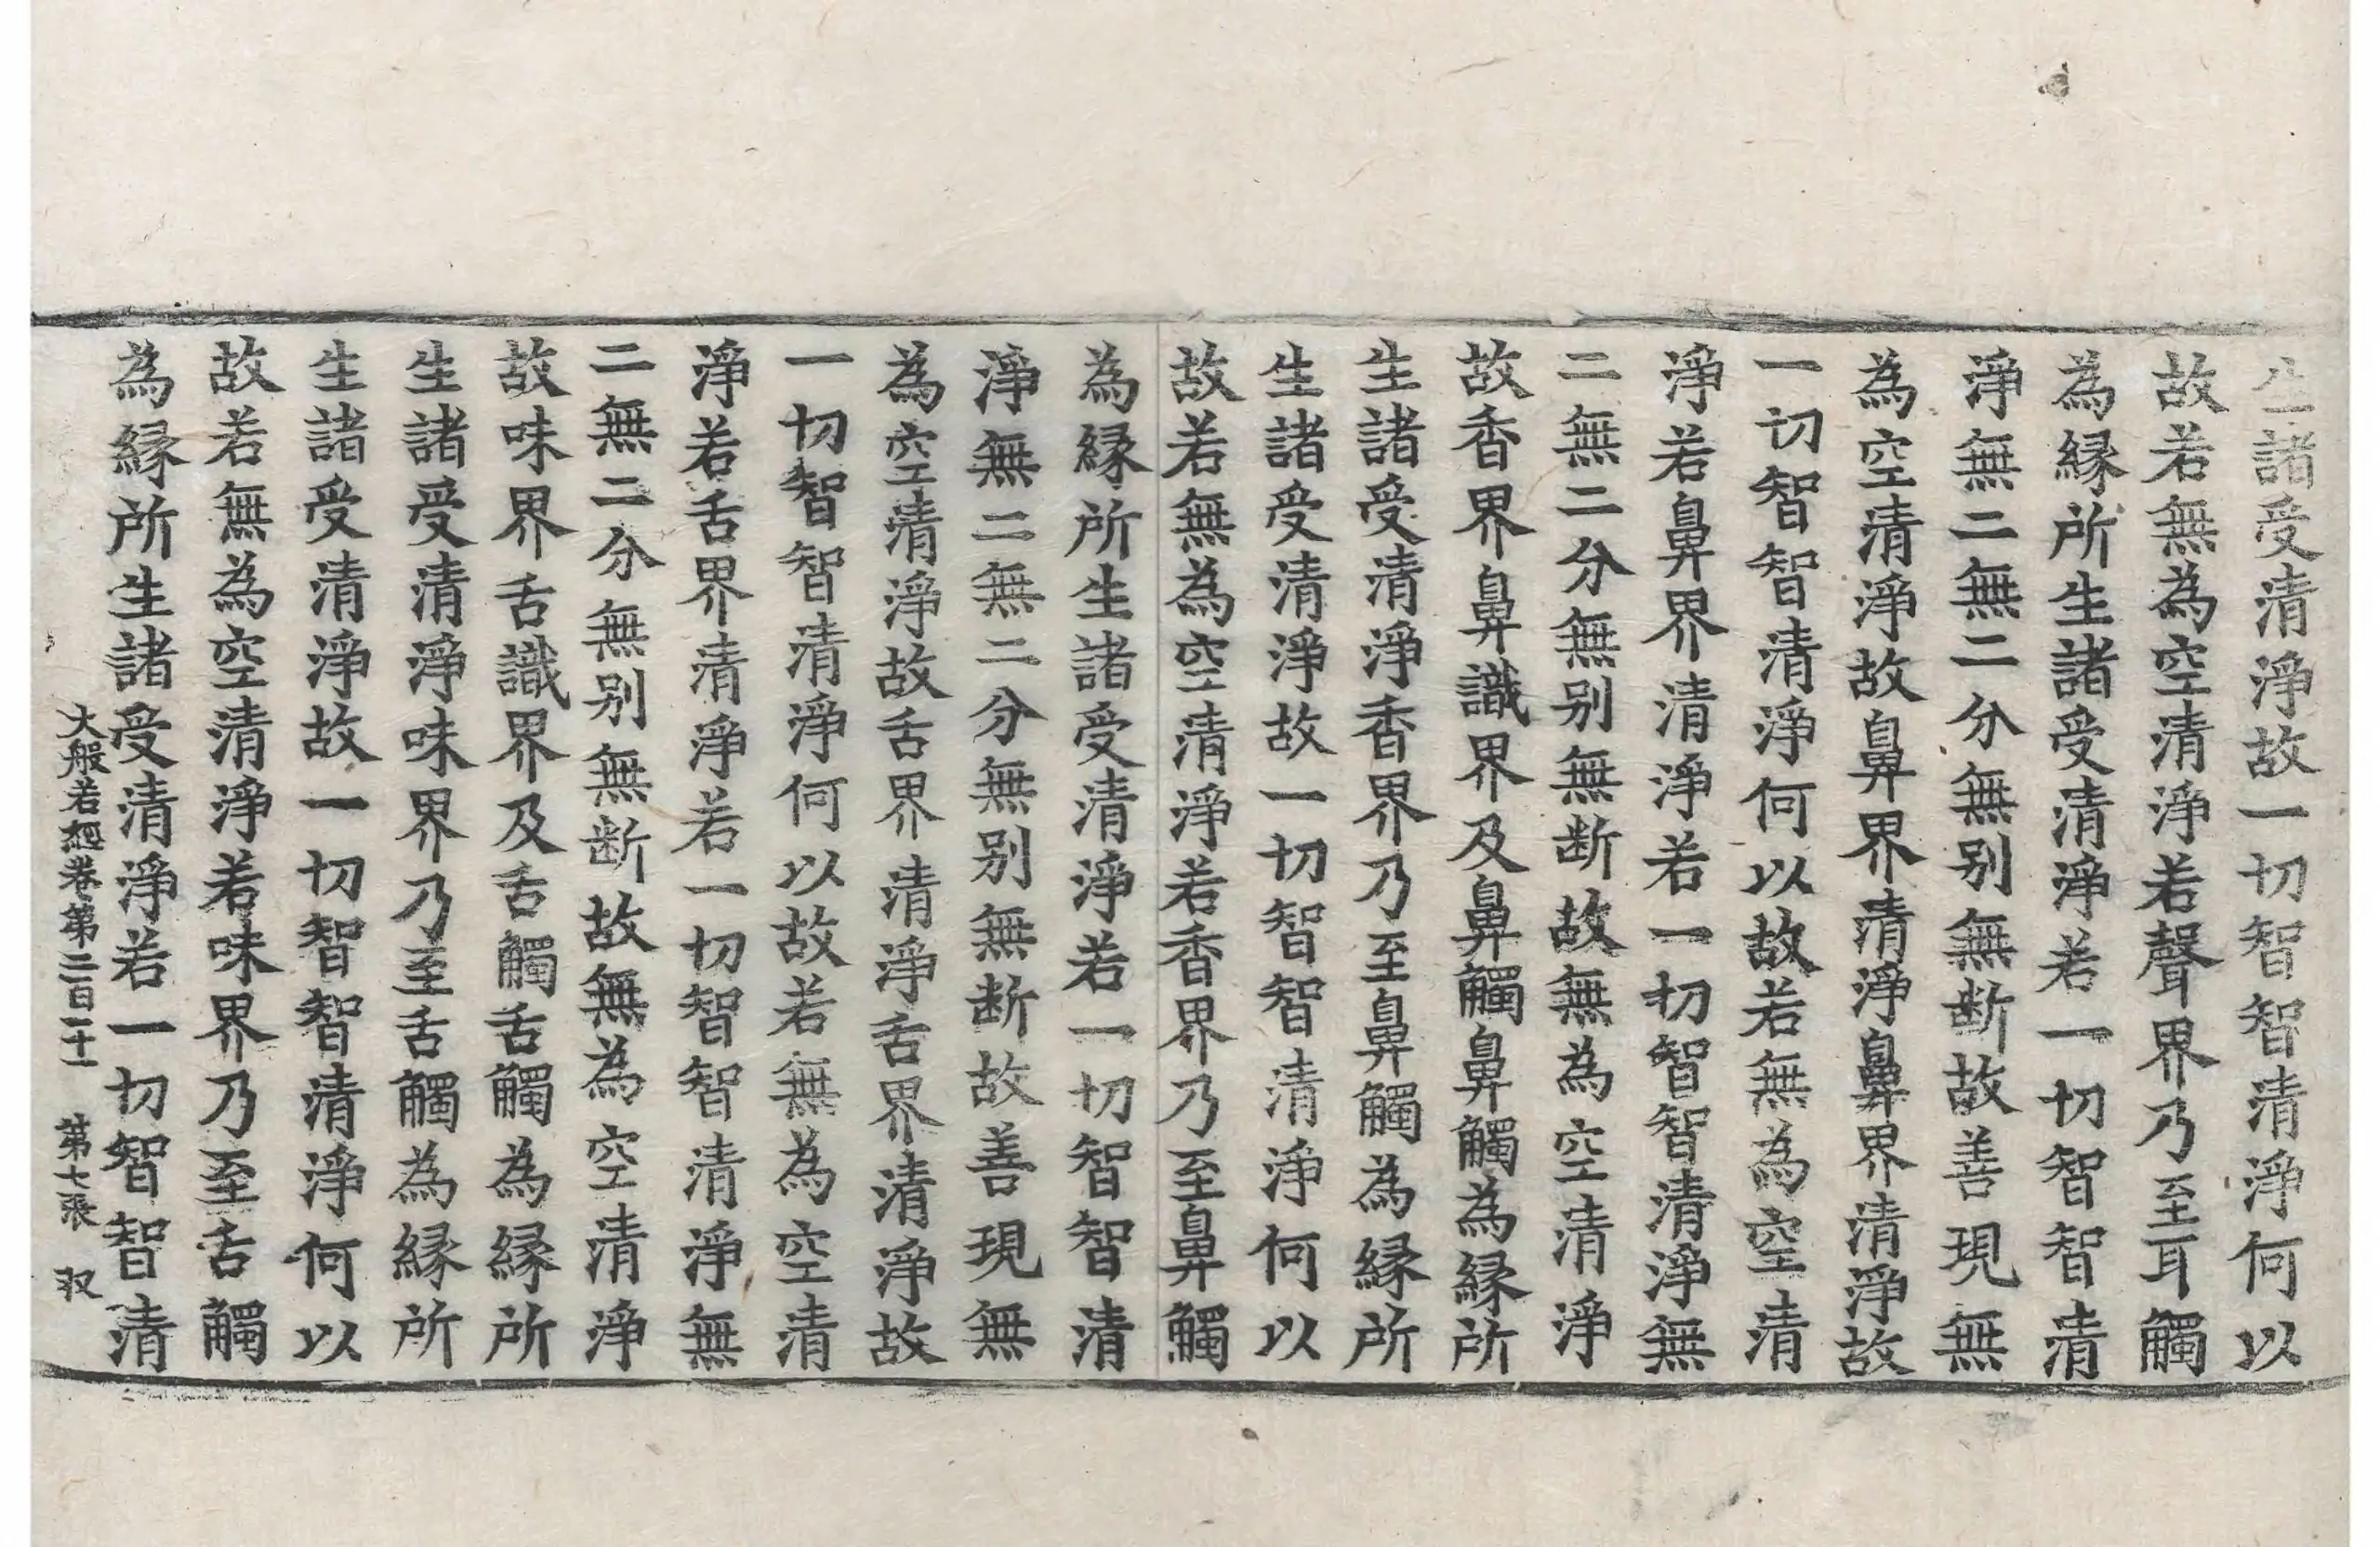 生諸受清淨故一切智智清淨何以
故若無為空清淨若聲界乃至耳觸
為縁所生諸受清淨若一切智智清
淨無二無二分無别無断故善現無
為空清淨故鼻界清淨鼻界清淨故
一切智智清淨何以故若無為空清
淨若鼻界清淨若一切智智清淨無
二無二分無别無断故無為空清淨
故香界鼻識界及鼻觸鼻觸為縁所
生諸受清淨香界乃至鼻觸為縁所
生諸受清淨故一切智智清淨何以
故若無為空清淨若香界乃至鼻觸
為縁所生諸受清淨若一切智智清
淨無二無二分無别無断故善現無
為空清淨故舌界清淨舌界清淨故
一切智智清淨何以故若無為空清
淨若舌界清淨若一切智智清淨無
二無二分無别無断故無為空清淨
故味界舌識界及舌觸舌觸為縁所
生諸受清淨味界乃至舌觸為縁所
生諸受清淨故一切智智清淨何以
故若無為空清淨若味界乃至舌觸
為縁所生諸受清淨若一切智智清
大般若経卷第二百二十一 第七張 収